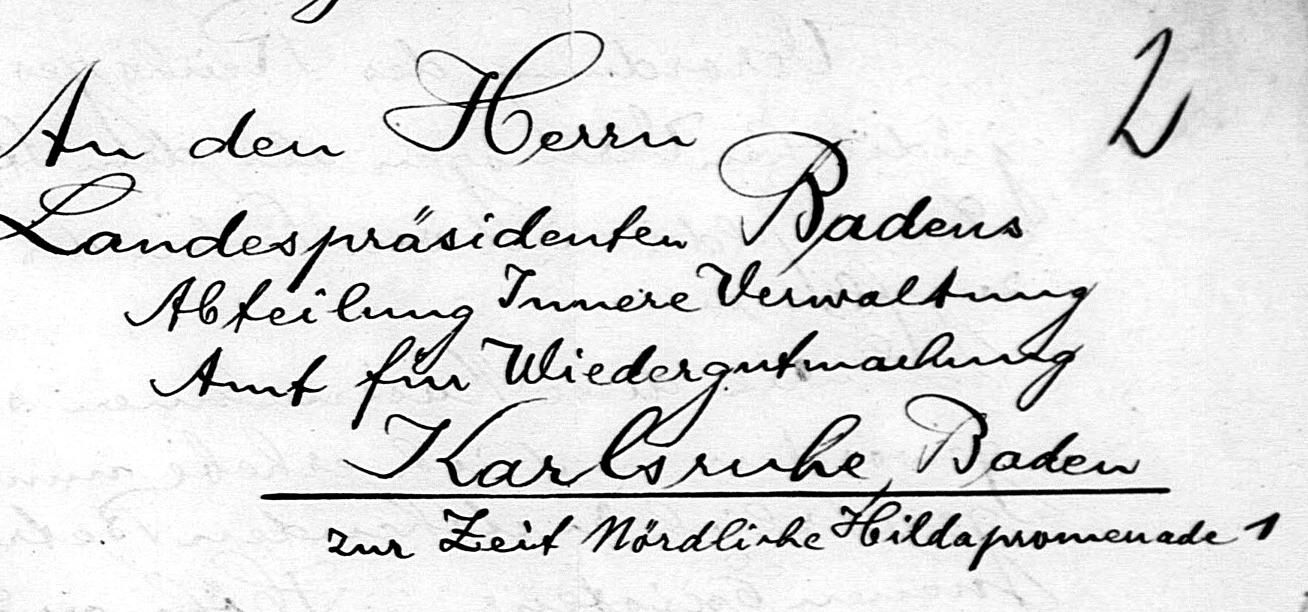 An den Herrn
2
Landespräsidenten Badens
Abteilung Innere Verwaltung
Amt für Wiedergutmachung
Karlsruhe, Baden
zur Zeit Nördliche Hildapromenade 1